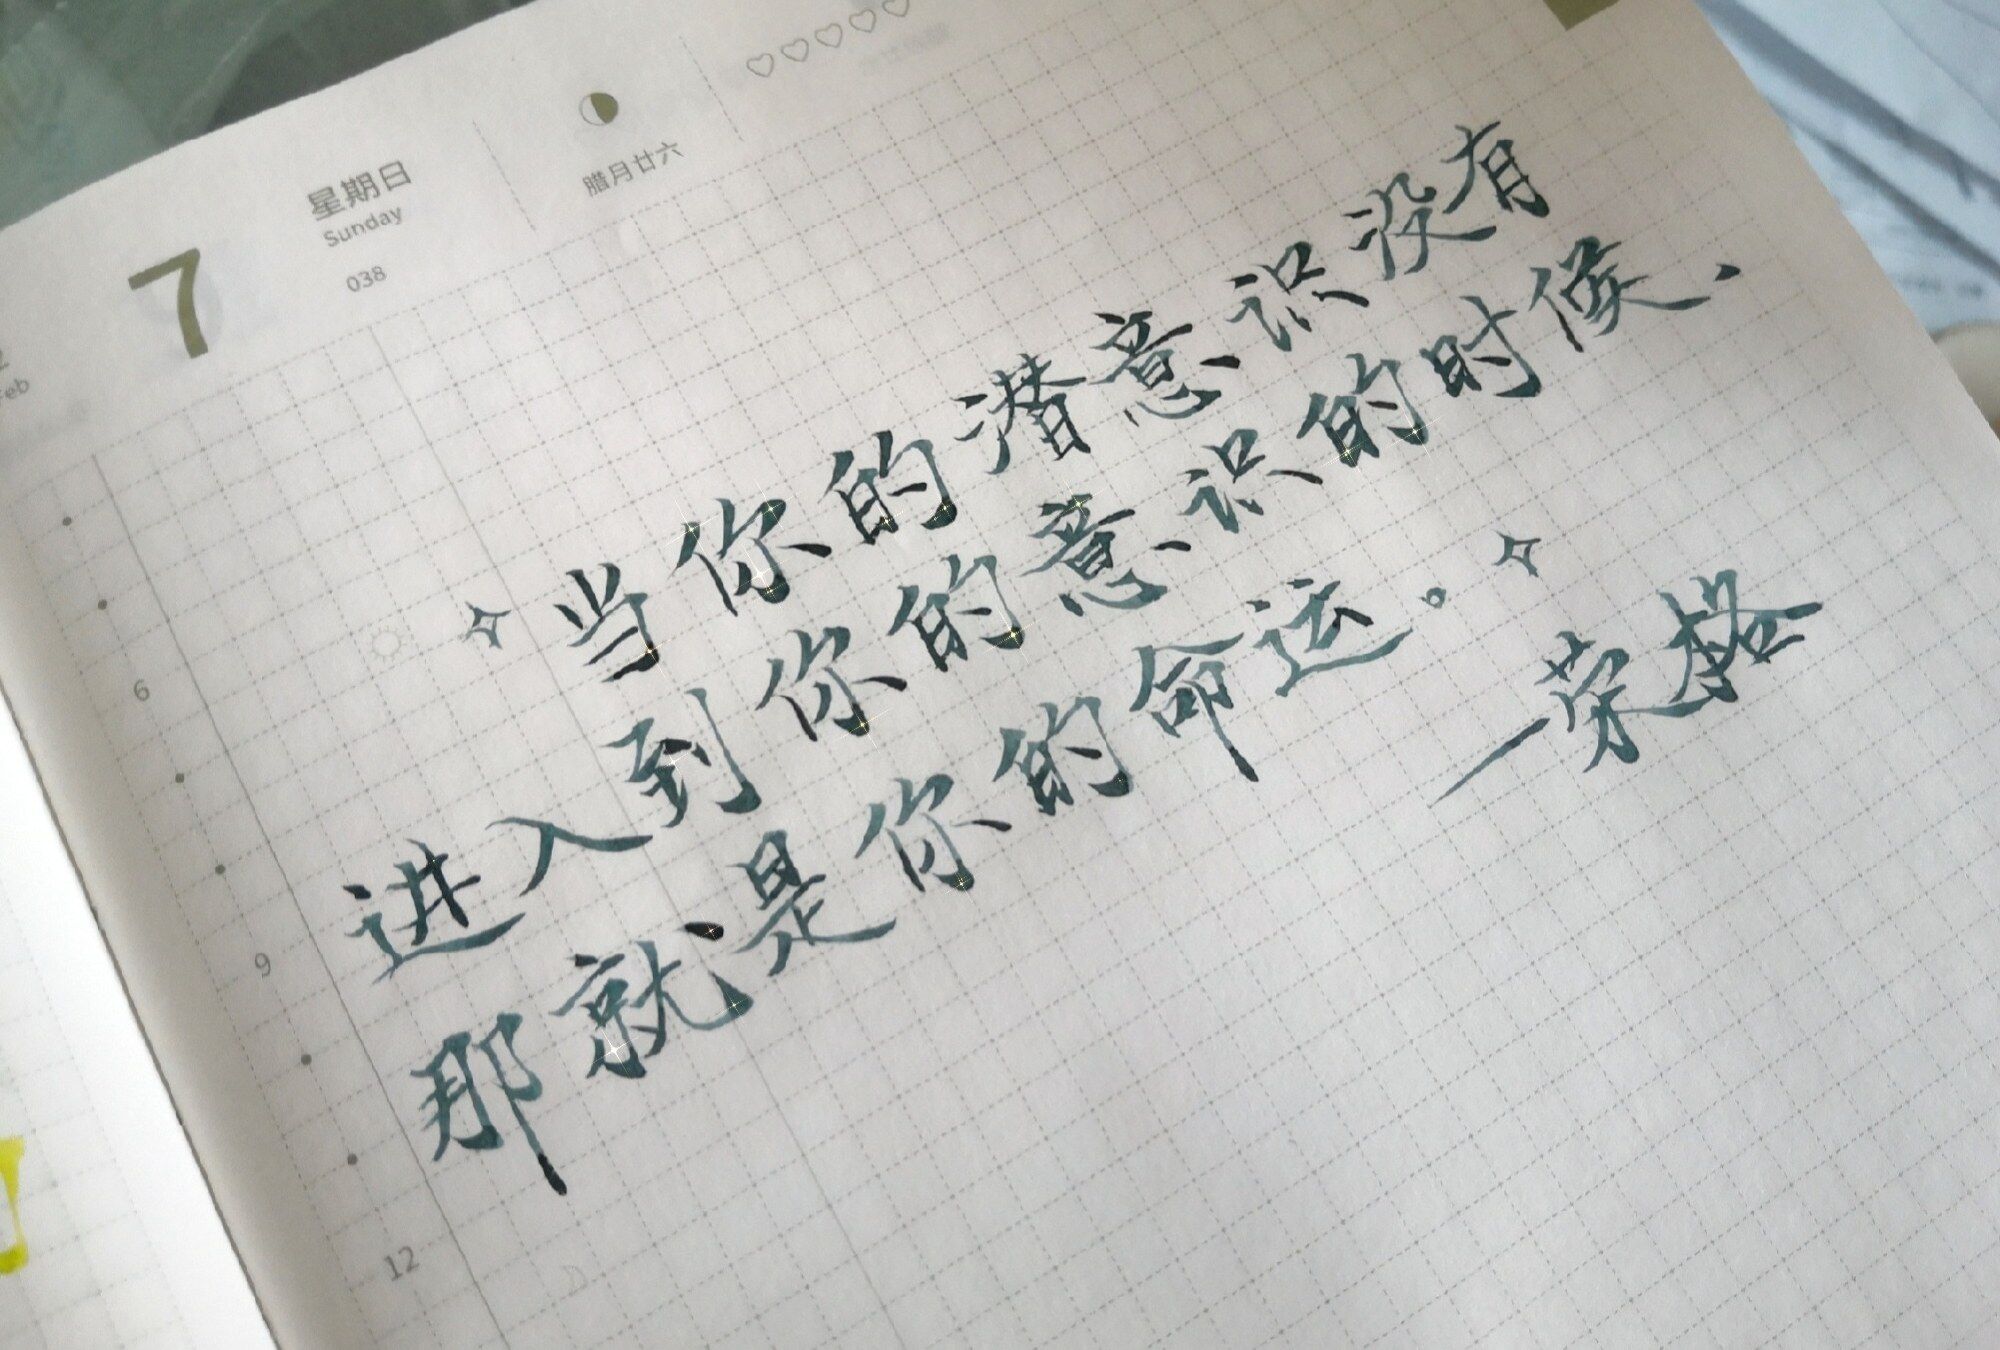 7
星期日
Sunday
038
腊月廿六
Feb
6
9
12
当你的潜意识没有
进入到你的意识的时候、
那就是你的命运。
—荣格